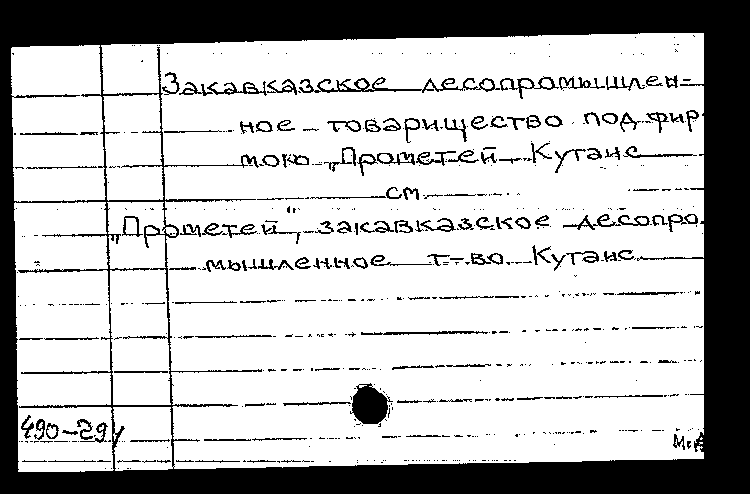 Закавказское лесопромышлен-
ное товарищество под фир
мою „Прометей, Кутаис
см.
„Прометей", закавказское лесопро
мышленное т-во. Кутаис
490-291